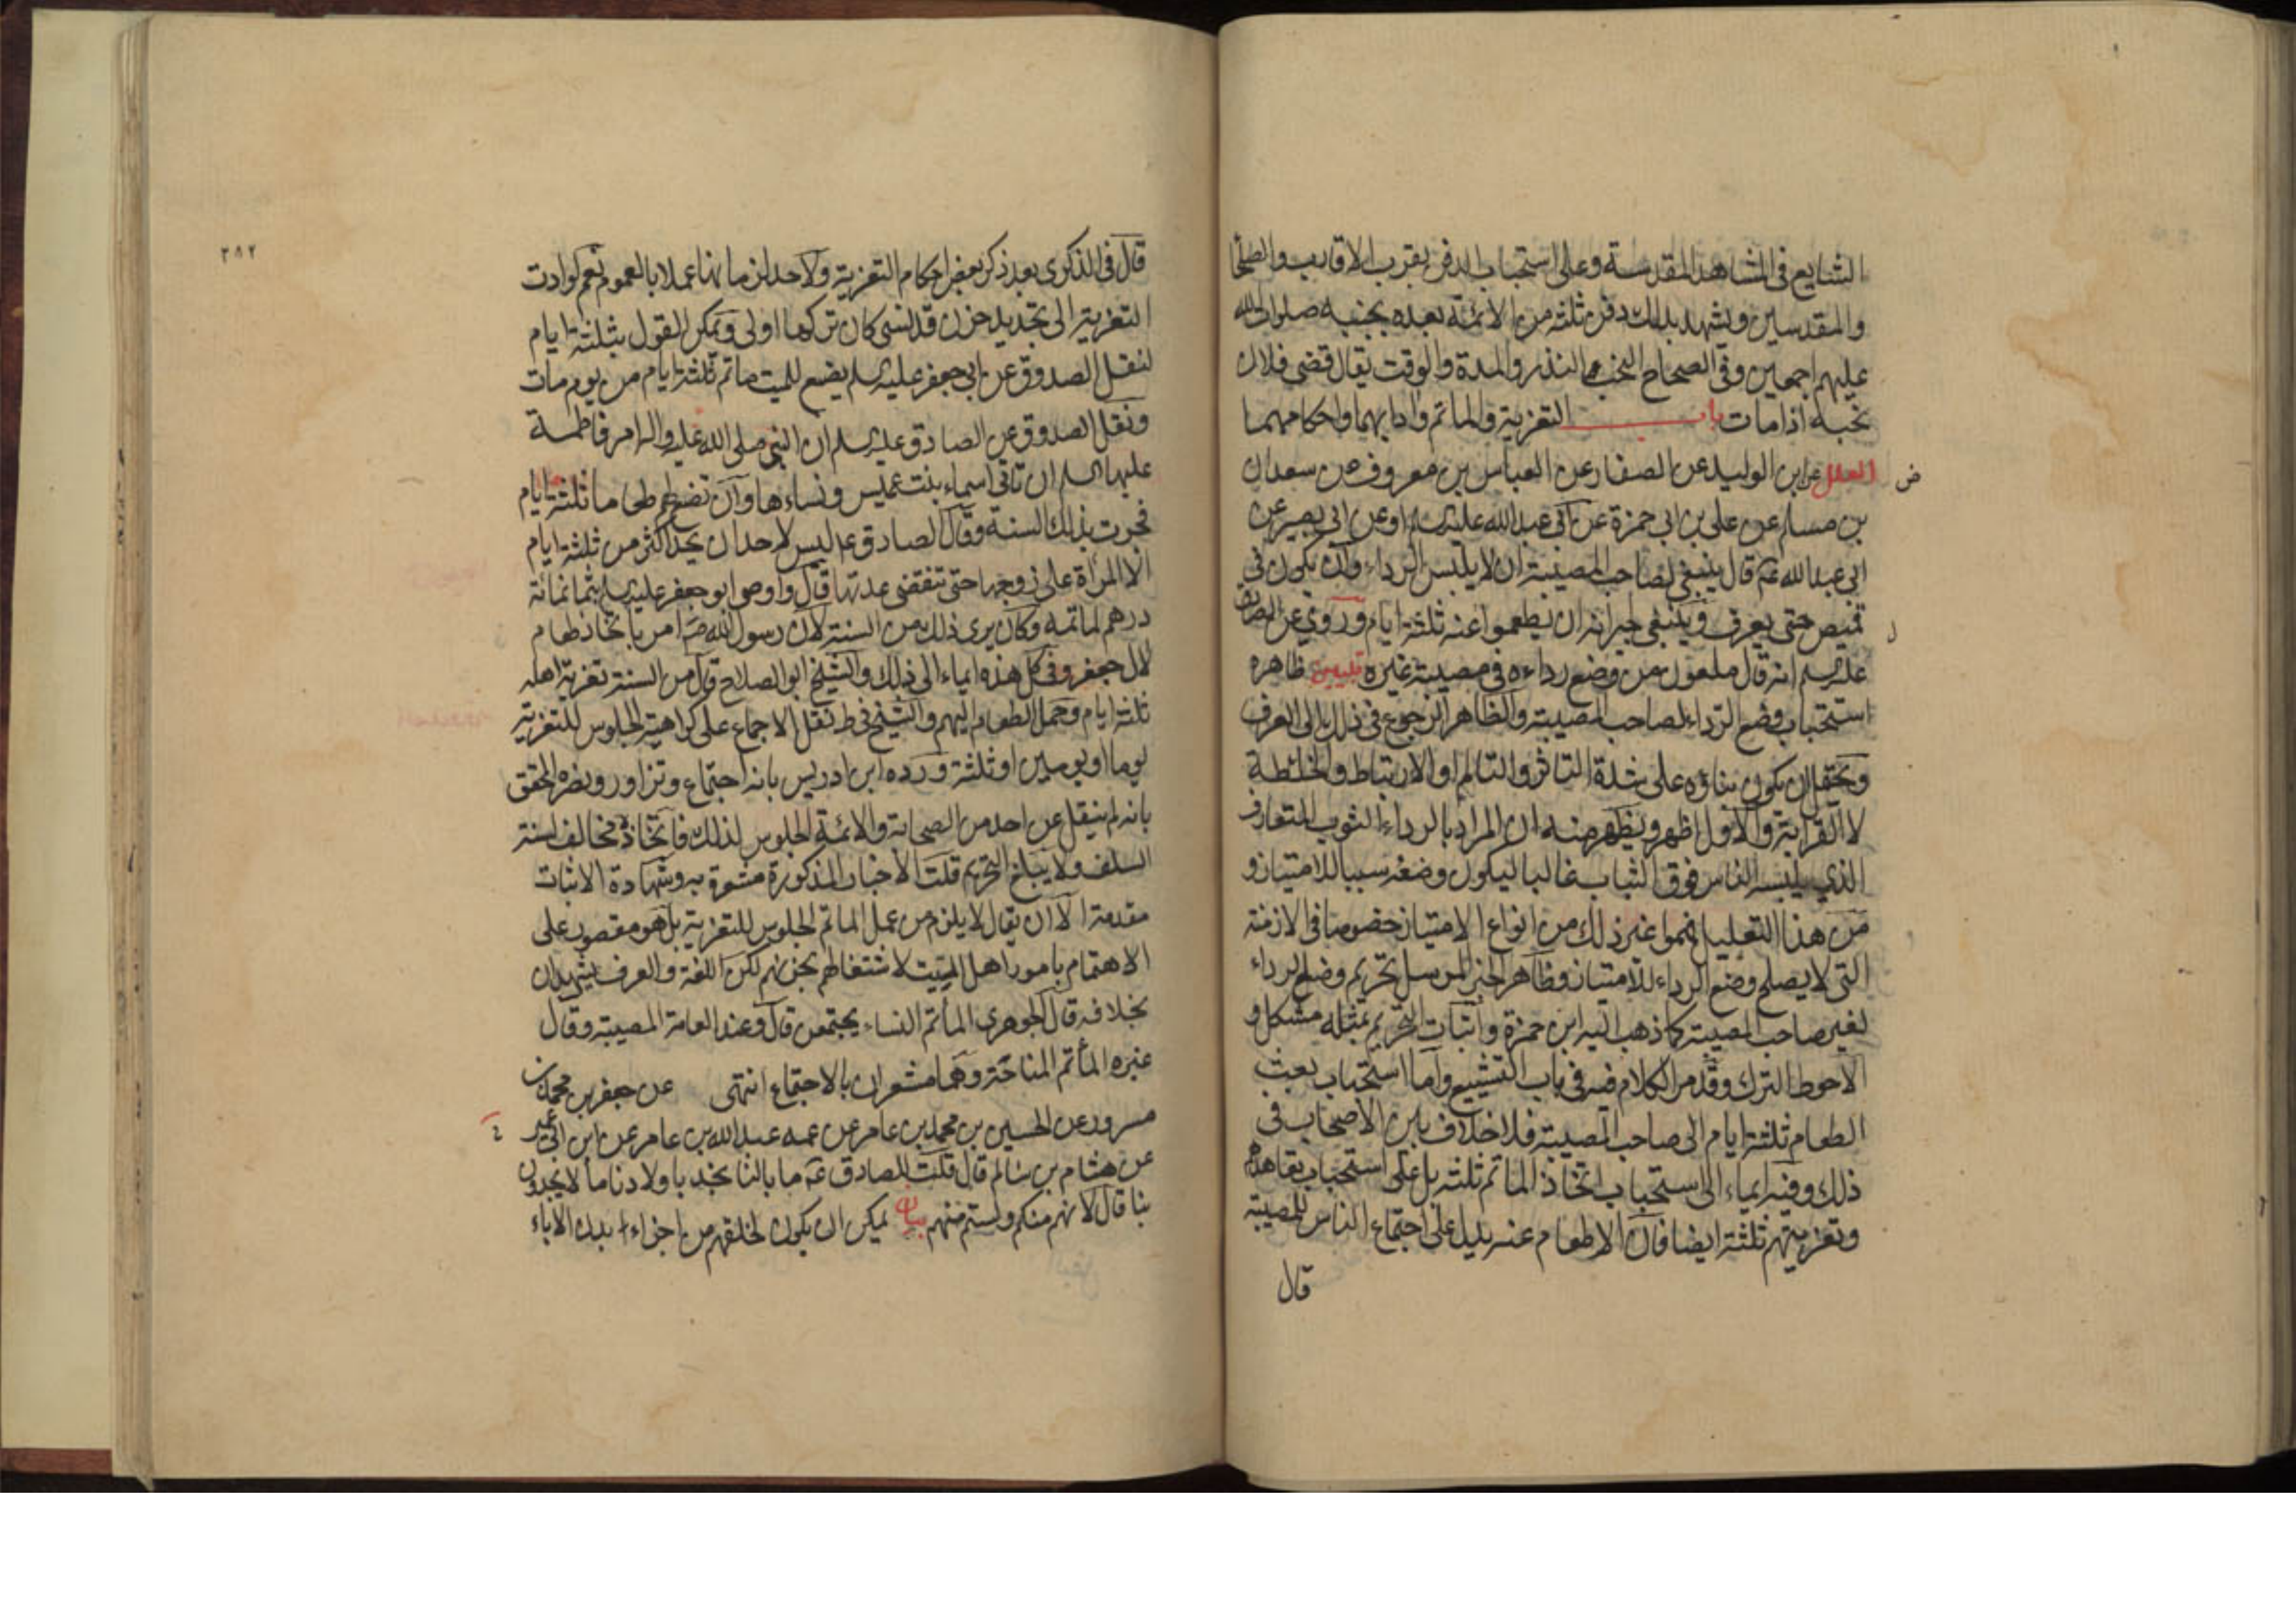 الشايع في المشاهد المقدسة وعلى استحباب الدفن بقرب الاقارب والصلحا
والمقدسين ويشهد بذلك دفن ثلثة من الائمة بعده بجنبه صلوات الله
عليهم اجمعين وفي الصحاح النحب النذر والمدة والوقت يقال قضى فلان
نحبه اذا مات باب التعزية والماتم وادابهما واحكامهما
العلل عن ابن الوليد عن الصفار عن العباس بن معروف عن سعدان
ض
بن مسلم عن علي بن ابي حمزة عن ابي عبد الله عليه السلم او عن ابي بصير عن
ابي عبد الله عم قال ينبغي لصاحب المصيبة ان لا يلبس الرداء وان يكون في
قميص حتى يعرف وينبغي لجيرانه ان يطعموا عنه ثلثة ايام وروي عن الصادق
عليه السلم انه قال ملعون من وضع رداءه في مصيبة غيره تبيين ظاهره
استحباب وضع الرداء لصاحب المصيبة والظاهر الرجوع في ذلك الى العرف
ويحتمل ان يكون بناؤه على شدة التاثر والتالم او الارتباط والخلطة
لا القرابة والاول اظهر ويظهر منه ان المراد بالرداء الثوب المتعارف
الذي يلبسه الناس فوق الثياب غالبا ليكون وضعه سببا للامتياز و
من هذا التعليل غير ذلك من انواع الامتياز خصوصا في الازمنة
التي لا يصلح وضع الرداء للامتياز وظاهر الخبر المرسل تحريم وضع الرداء
لغير صاحب المصيبة كما ذهب اليه ابن حمزة واثبات التحريم بمثله مشكل و
الاحوط الترك وقد مر الكلام فيه في باب التشييع واما استحباب بعث
الطعام ثلثة ايام الى صاحب المصيبة فلا خلاف بين الاصحاب في
ذلك وفيه ايماء الى استحباب اتخاذ الماتم ثلثة بل على استحباب تعاهدهم
وتعزيتهم ثلثة ايضا فان الاطعام عنه يدل على اجتماع الناس للمصيبة
قال
٣٨٢
قال في الذكرى بعد ذكر بعض احكام التعزية ولا حد لزمانها عملا بالعموم نعم لو ادت
التعزية الى تجديد حزن قد نسي كان تركها اولى ويمكن القول بثلثة ايام
لنقل الصدوق عن ابي جعفر عليه السلم يصنع للميت ماتم ثلثة ايام من يوم مات
ونقل الصدوق عن الصادق عليه السلم ان النبي صلى الله عليه واله امر فاطمة
عليها السلم ان تاتي اسماء بنت عميس ونساءها وان تصنع لهم طعاما ثلثة ايام
فجرت بذلك السنة وقال الصادق عم ليس لاحد ان يحد اكثر من ثلثة ايام
الا المرأة على زوجها حتى تنقضي عدتها قال واوصى ابو جعفر عليه السلم بثمانمائة
درهم لماتمه وكان يرى ذلك من السنة لان رسول الله ص امر باتخاذ طعام
لال جعفر وفي كل هذه ايماء الى ذلك والشيخ ابو الصلاح قال من السنة تعزية اهله
ثلثة ايام وحمل الطعام اليهم والشيخ في ط نقل الاجماع على كراهية الجلوس للتعزية
يوما او يومين او ثلثة ورده ابن ادريس بانه اجتماع وتزاور ونصره المحقق
بانه لم ينقل عن احد من الصحابة والائمة الجلوس لذلك فاتخاذه مخالف لسنة
السلف ولا يبلغ التحريم قلت الاخبار المذكورة مشعرة به وشهادة الاثبات
مقدمة الا ان يقال لا يلزم من عمل الماتم الجلوس للتعزية بل هو مقصور على
الاهتمام بامور اهل الميت لاشتغالهم بحزنهم لكن اللغة والعرف يشهدان
بخلافه قال الجوهري المأتم النساء يجتمعن قال وعند العامة المصيبة وقال
غيره المأتم المناحة وهما مشعران بالاجتماع انتهى عن جعفر بن محمد بن
مسرور عن الحسين بن محمد بن عامر عن عمه عبد الله بن عامر عن ابن ابي عمير
عن هشام بن سالم قال قلت للصادق عم ما بالنا نجد باولادنا ما لا يجدون
بنا قال لانهم منكم ولستم منهم بيان يمكن ان يكون لخلقهم من اجزاء بدن الاباء